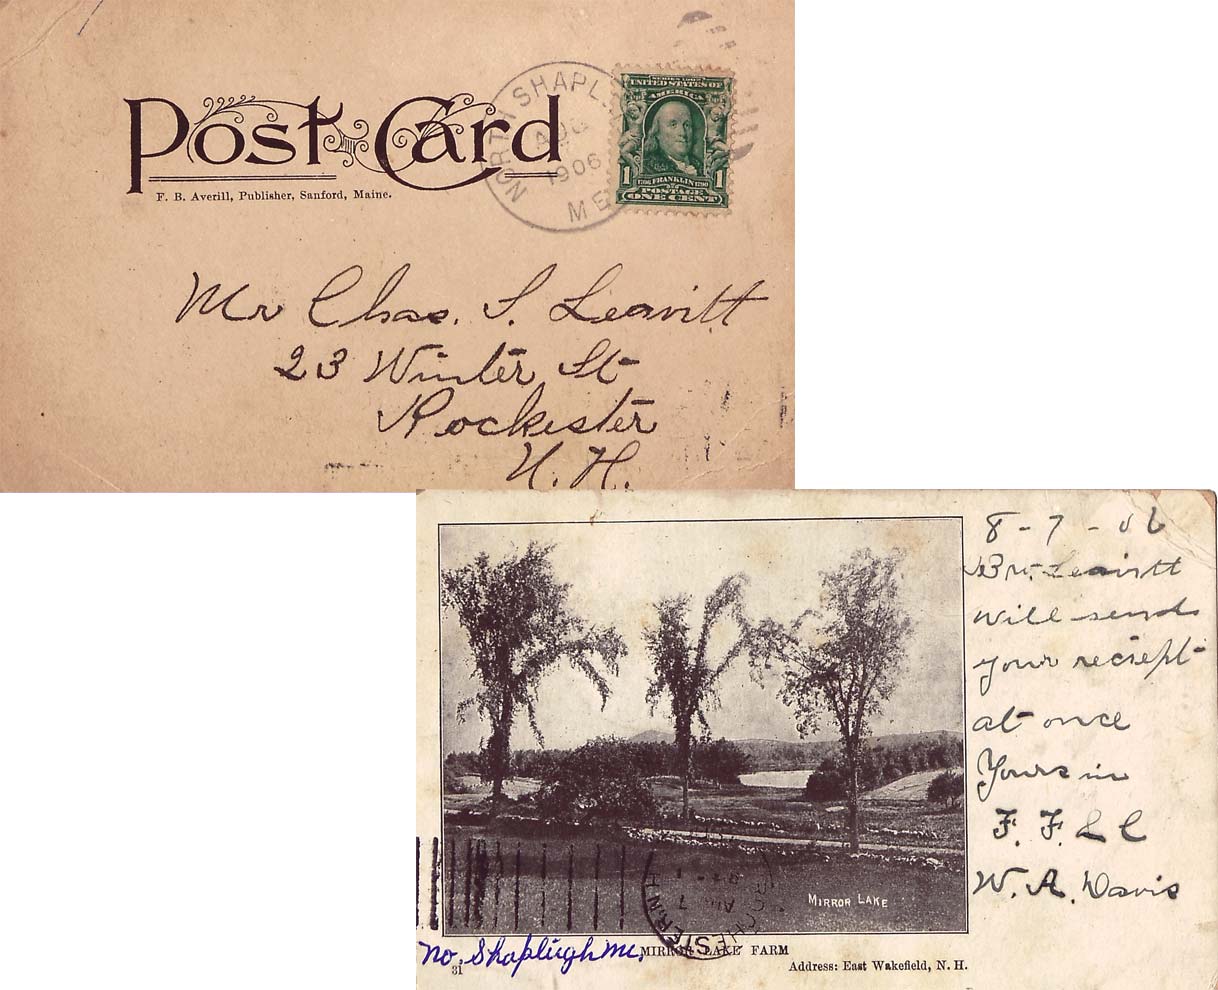 Post Card
F. B. Averill, Publisher, Sanford, Maine.
NORTH SHAPL
AUG
1906
ME
SERIES 1902
UNITED STATES OF
AMERICA
1 1706 FRANKLIN 1790 1
POSTAGE
ONE CENT
Mr Chas. S. Leavitt
23 Winter St
Rochester
N. H.
8-7-06
Bro. Leavitt
will send
your reciept
at once
Yours in
F. F. & C
W. A. Davis
MIRROR LAKE
ROCHESTER N.H.
AUG
7
No. Shapligh Me.
MIRROR LAKE FARM
31
Address: East Wakefield, N. H.